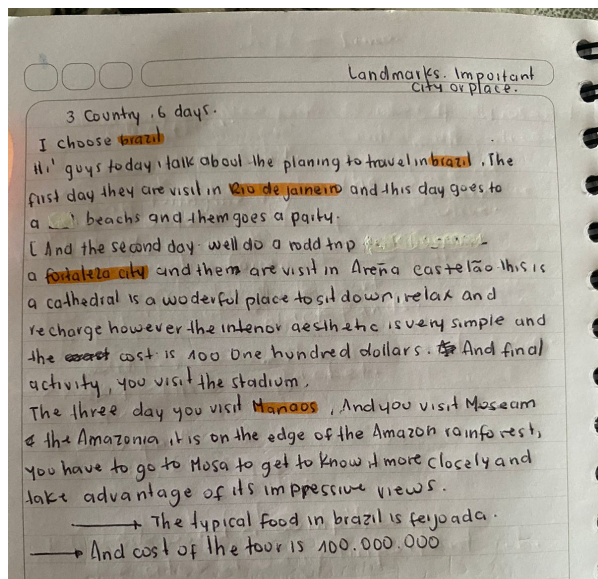 Landmarks. Important
City or place.
3 Country, 6 days.
I choose brazil
Hi' guys today i talk about the planing to travel in brazil. The
first day they are visit in Rio de jaineiro and this day goes to
a beachs and them goes a party.
[ And the second day well do a rodd trip
a fortaleza city and them are visit in Arena castelão this is
a cathedral is a woderful place to sit down, relax and
recharge however the interior aesthetic is very simple and
the cost is 100 one hundred dollars. And final
activity, you visit the stadium.
The three day you visit Manaos, And you visit Moseam
the Amazonia, it is on the edge of the Amazon rainforest,
you have to go to Mosa to get to know it more closely and
take advantage of its impressive views.
→ The typical food in brazil is feijoada.
→ And cost of the tour is 100.000.000